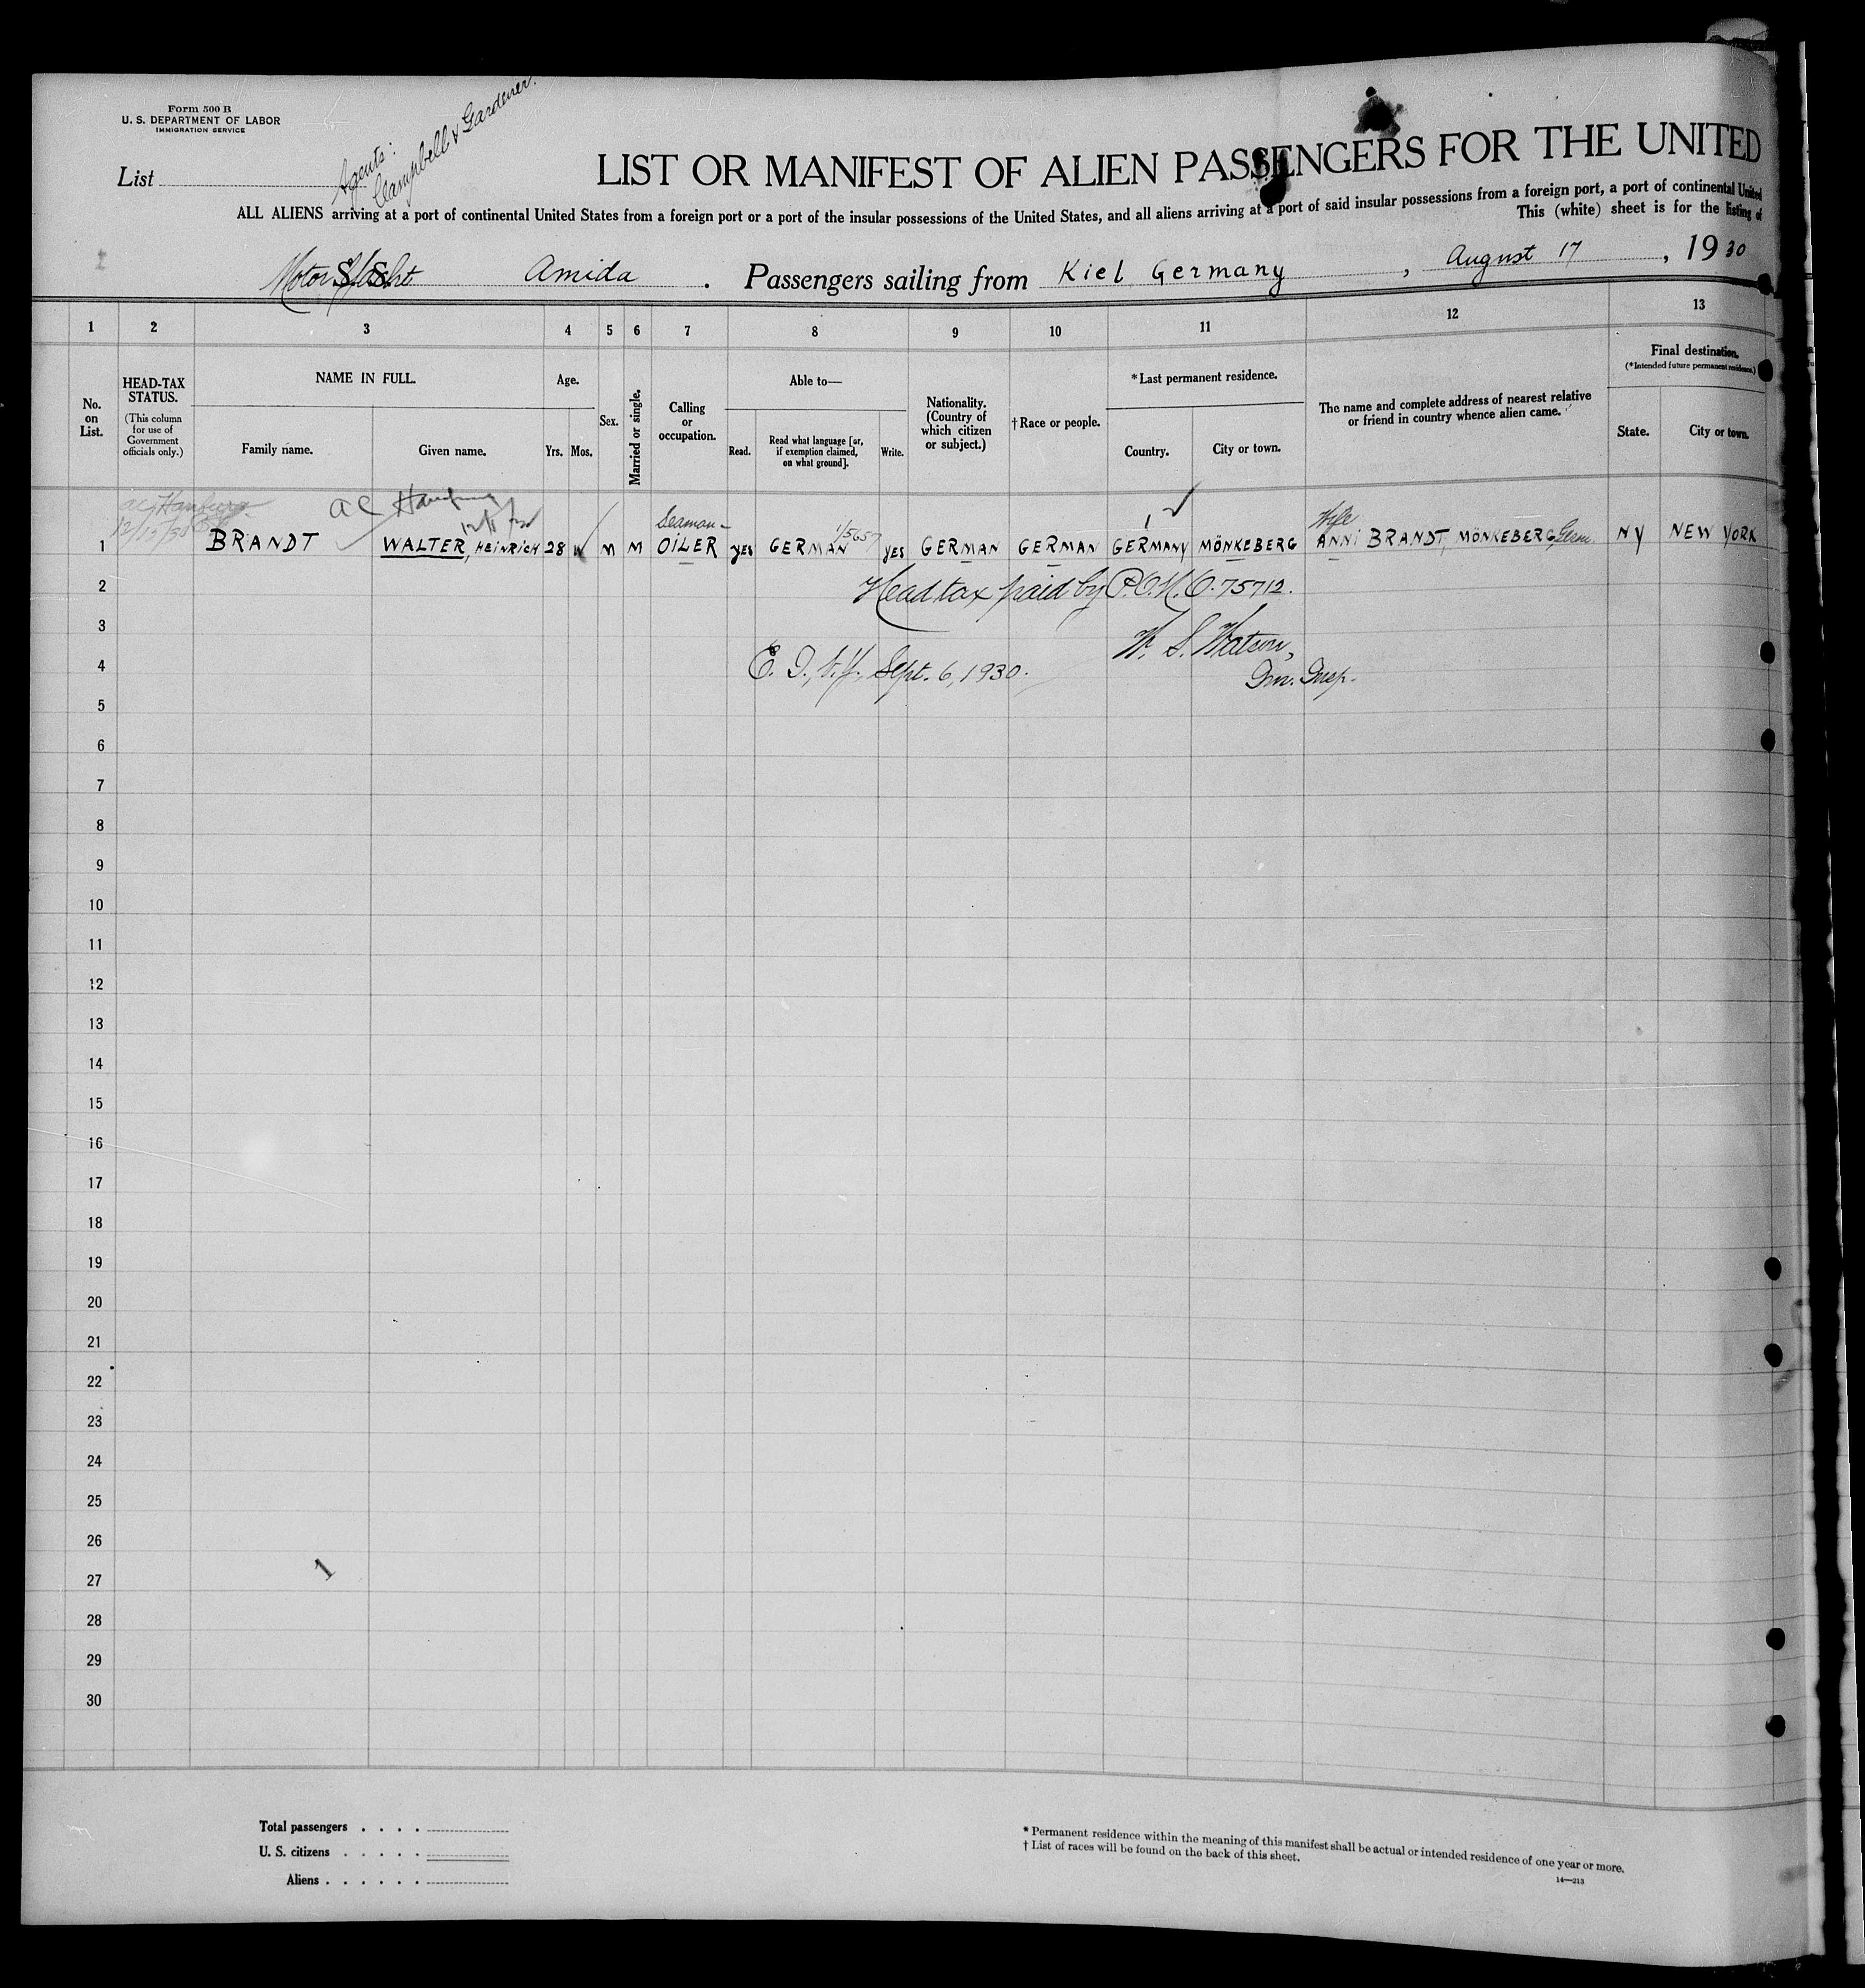 Form 500 B
U. S. DEPARTMENT OF LABOR
IMMIGRATION SERVICE
List
Agents:
Campbell & Gardener.
LIST OR MANIFEST OF ALIEN PASSENGERS FOR THE UNITED
ALL ALIENS arriving at a port of continental United States from a foreign port or a port of the insular possessions of the United States, and all aliens arriving at a port of said insular possessions from a foreign port, a port of continental United
This (white) sheet is for the listing of
Motor Yacht S. S. Amida . Passengers sailing from Kiel Germany , August 17 , 19 30
1 2 3 4 5 6 7 8 9 10 11 12 13
No. on List.
HEAD-TAX STATUS.
(This column for use of Government officials only.)
NAME IN FULL.
Family name.
Given name.
Age.
Yrs.
Mos.
Sex.
Married or single.
Calling or occupation.
Able to—
Read.
Read what language [or, if exemption claimed, on what ground].
Write.
Nationality. (Country of which citizen or subject.)
† Race or people.
* Last permanent residence.
Country.
City or town.
The name and complete address of nearest relative or friend in country whence alien came.
Final destination.
(*Intended future permanent residence.)
State.
City or town.
ac Hamburg
ac Hamburg
Seaman -
Wife
1 BRANDT WALTER, HEINRICH 28 M M OILER yes GERMAN yes GERMAN GERMAN GERMANY MÖNKEBERG ANNI BRANDT, MÖNKEBERG, Germ. NY NEW YORK
2 Head tax paid by P.O.N.O. 75712.
3 W. S. Watson,
4 E. I., N.Y. Sept. 6, 1930. Im. Insp.
5
6
7
8
9
10
11
12
13
14
15
16
17
18
19
20
21
22
23
24
25
26
1
27
28
29
30
Total passengers . . . .
U. S. citizens . . . . .
Aliens . . . . . .
* Permanent residence within the meaning of this manifest shall be actual or intended residence of one year or more.
† List of races will be found on the back of this sheet.
14—213